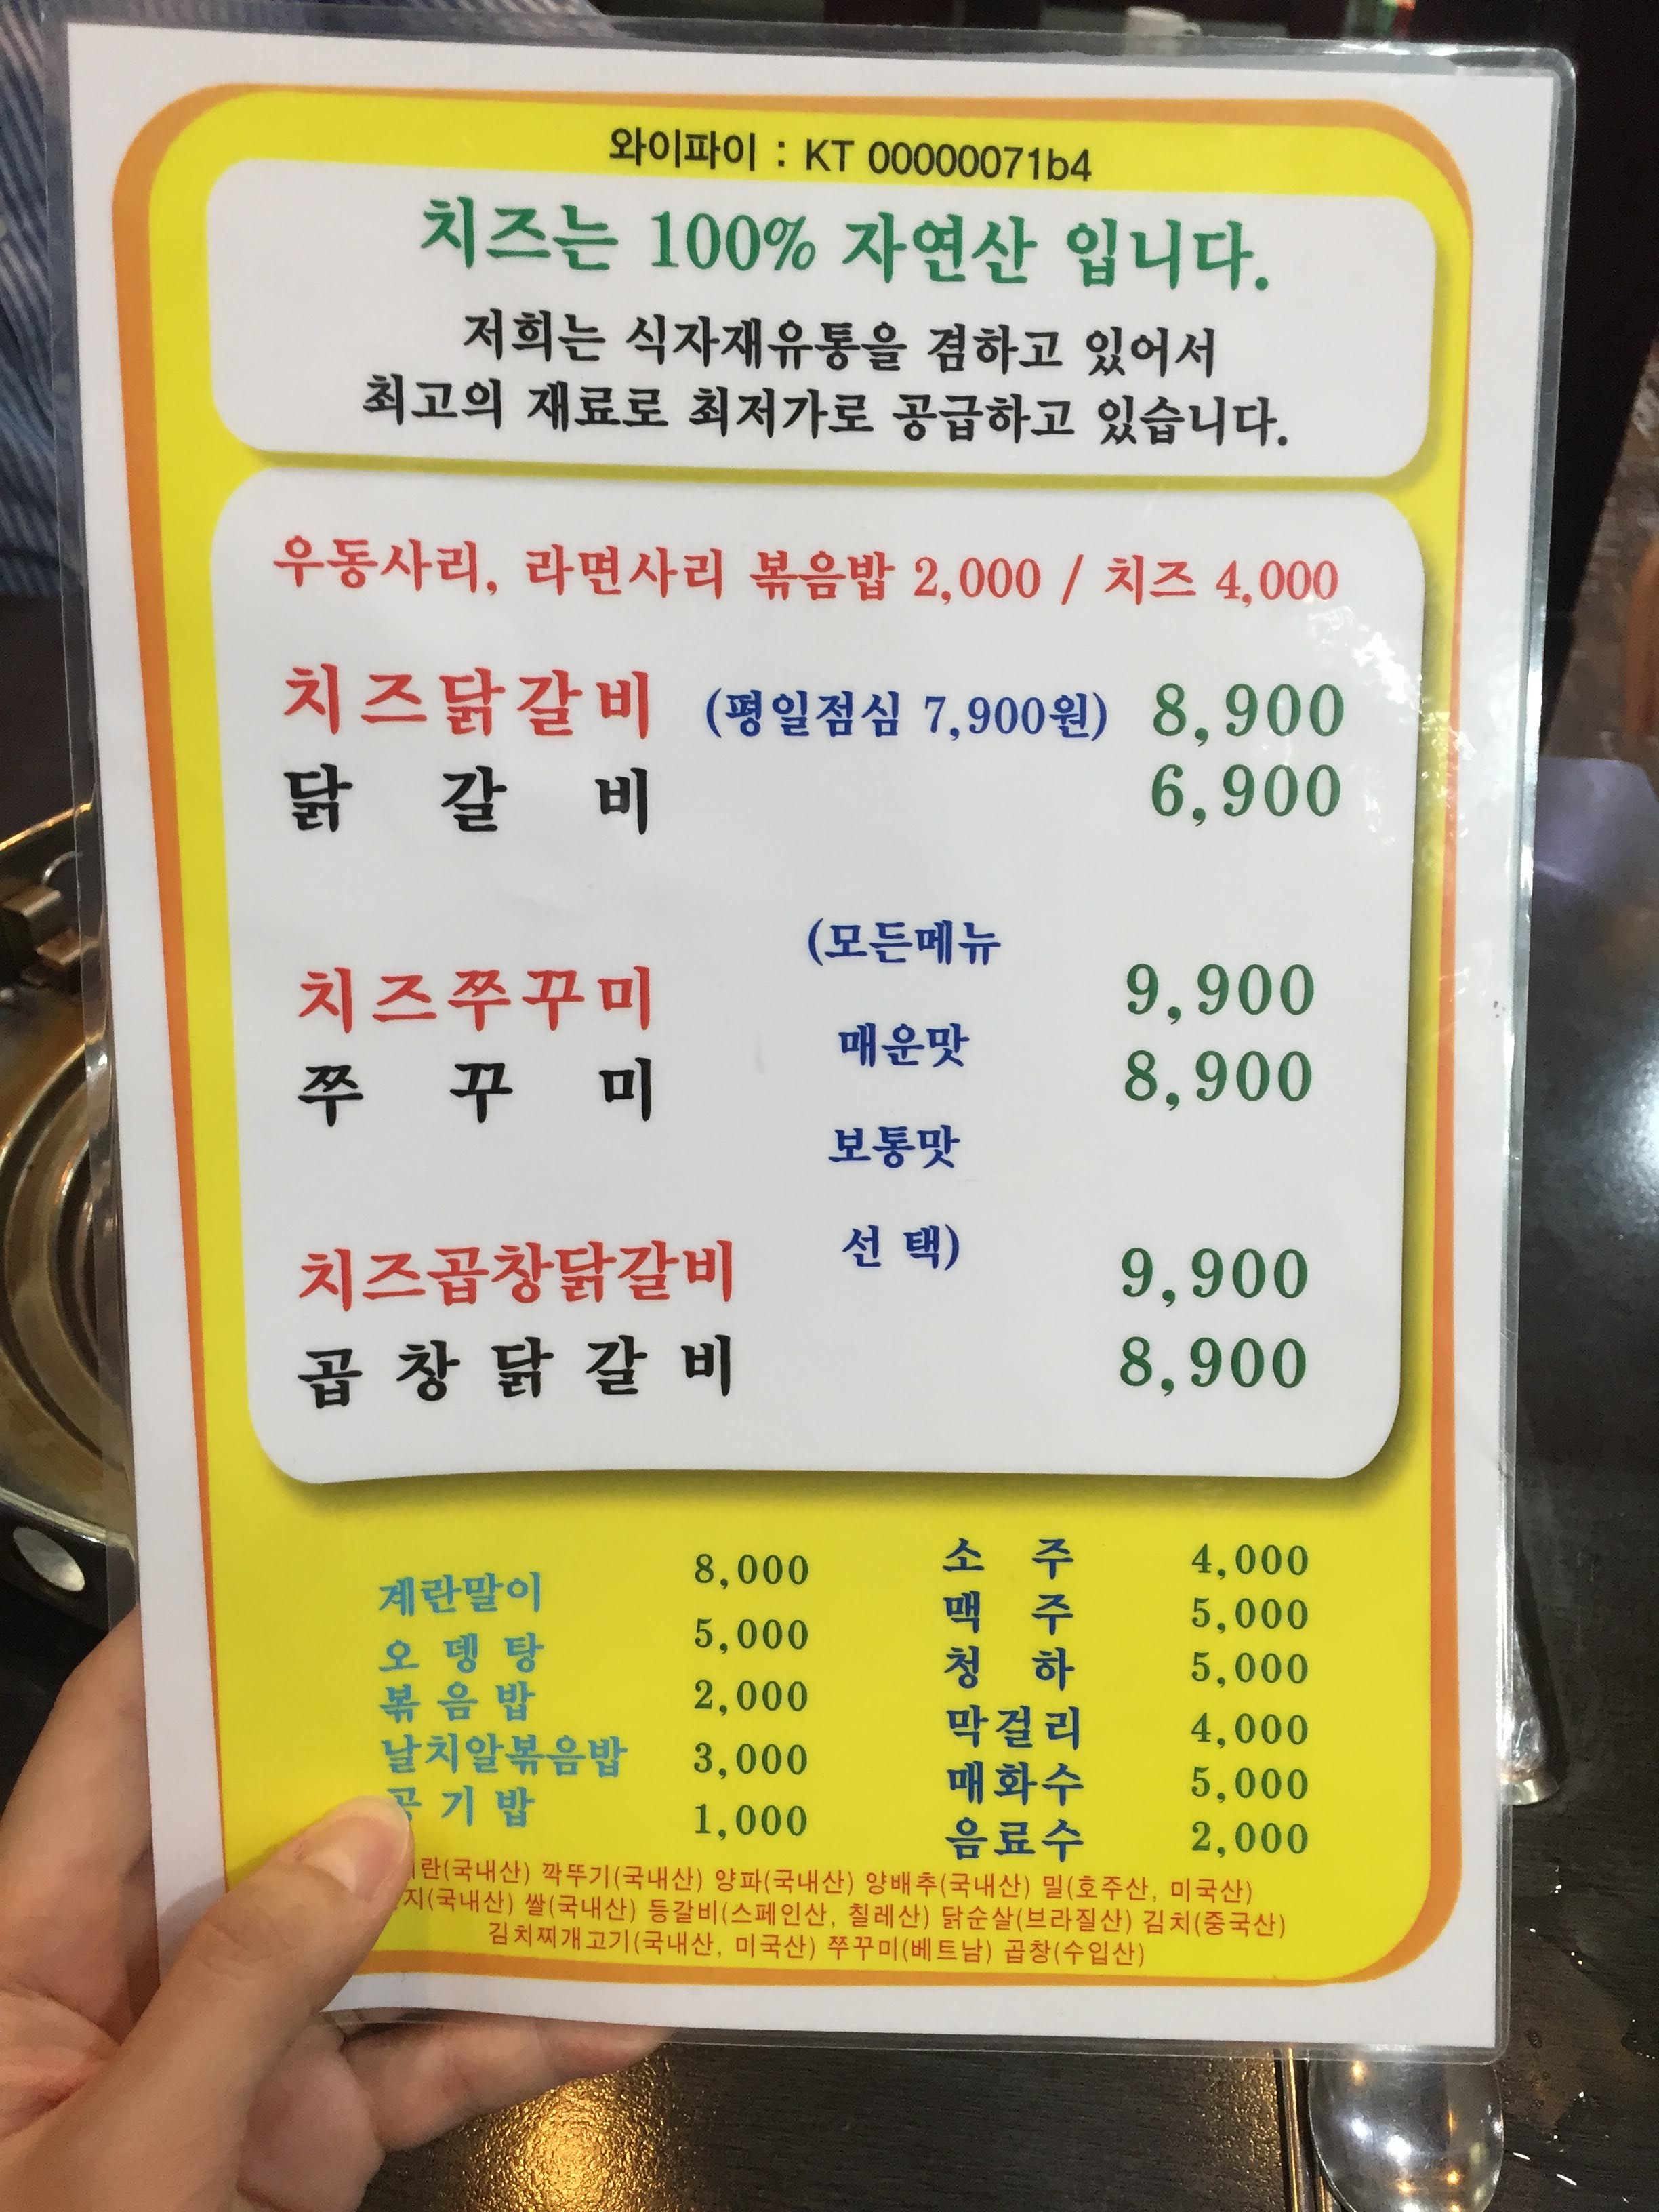 와이파이 : KT 00000071b4
치즈는 100% 자연산 입니다.
저희는 식자재유통을 겸하고 있어서
최고의 재료로 최저가로 공급하고 있습니다.
우동사리, 라면사리 볶음밥 2,000 / 치즈 4,000
치즈닭갈비 (평일점심 7,900원) 8,900
닭갈비 6,900
(모든메뉴
치즈쭈꾸미 9,900
매운맛
쭈꾸미 8,900
보통맛
선택)
치즈곱창닭갈비 9,900
곱창닭갈비 8,900
계란말이 8,000
오뎅탕 5,000
볶음밥 2,000
날치알볶음밥 3,000
공기밥 1,000
소주 4,000
맥주 5,000
청하 5,000
막걸리 4,000
매화수 5,000
음료수 2,000
깍뚜기(국내산) 양파(국내산) 양배추(국내산) 밀(호주산, 미국산)
쌀(국내산) 등갈비(스페인산, 칠레산) 닭순살(브라질산) 김치(중국산)
김치찌개고기(국내산, 미국산) 쭈꾸미(베트남) 곱창(수입산)